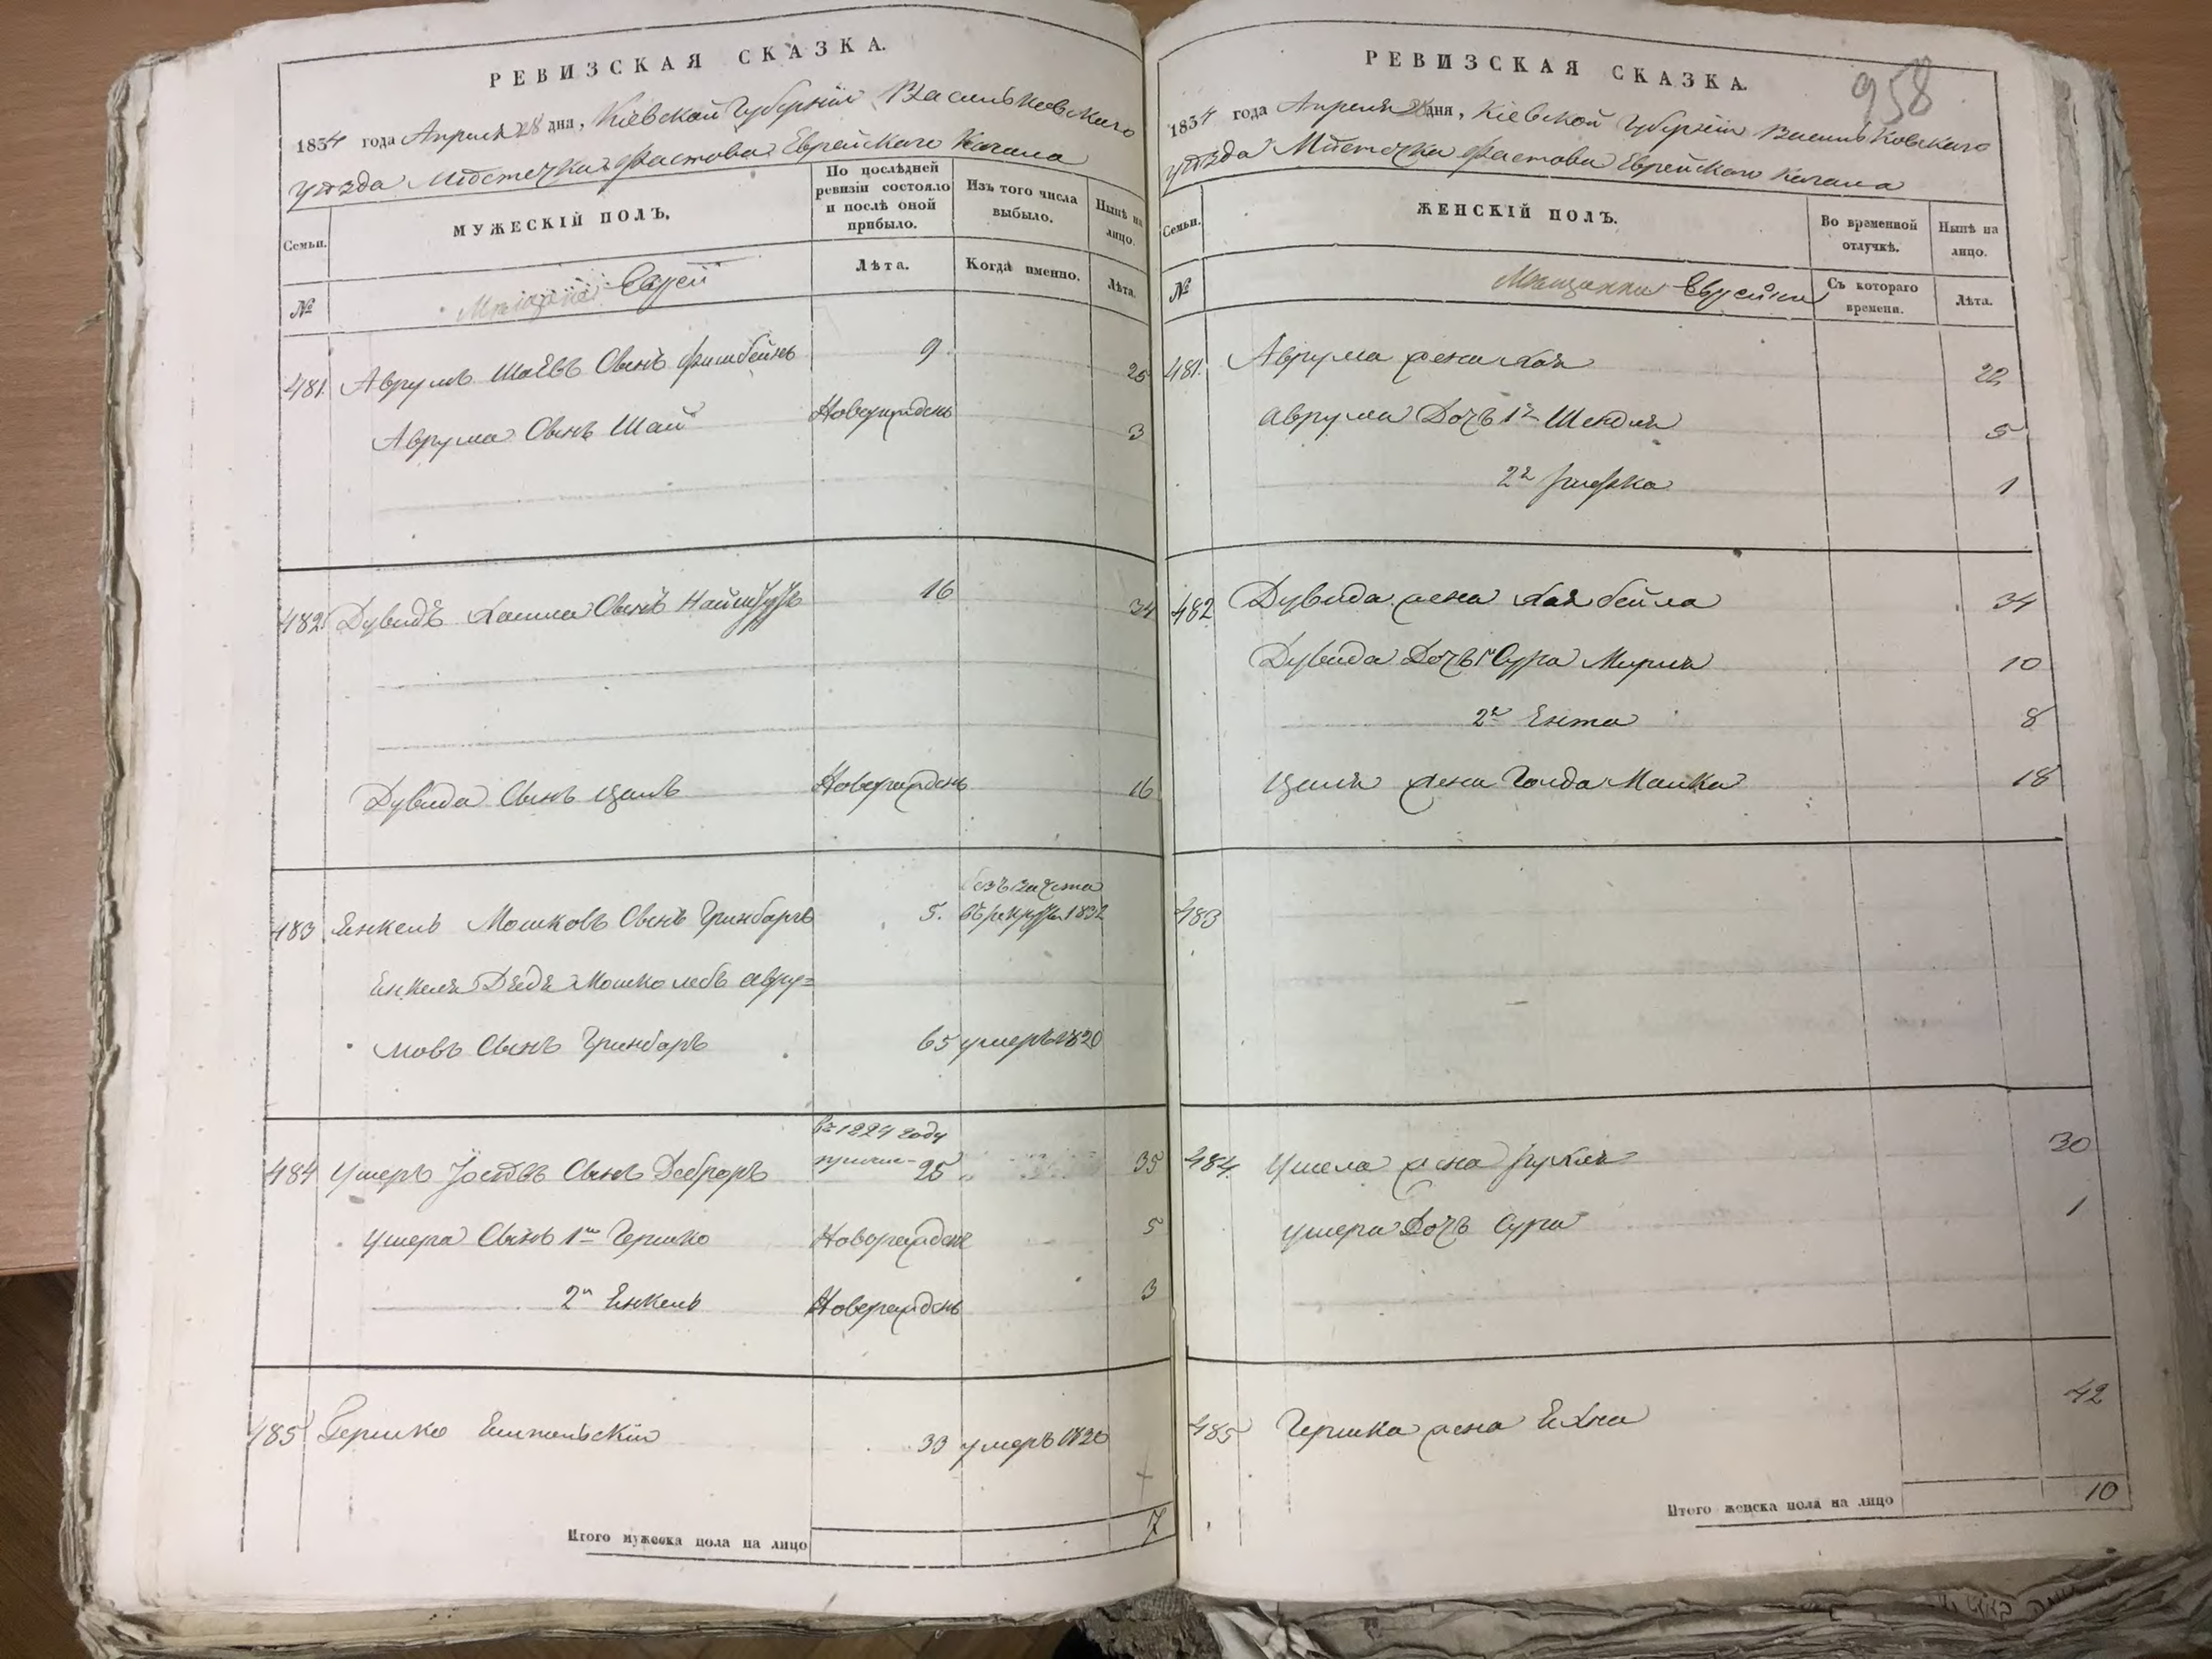 РЕВИЗСКАЯ СКАЗКА.
1834 года Апреля 28 дня, Кіевской Губерніи Васильковского
уѣзда Мѣстечка Фастова Еврейского Кагала
Семьи.
МУЖЕСКІЙ ПОЛЪ.
По послѣдней ревизіи состояло и послѣ оной прибыло.
Изъ того числа выбыло.
Нынѣ на лицо.
№
Мѣщане Евреи
Лѣта.
Когда именно.
Лѣта.
481. Аврумъ Шаевъ Сынъ Фишбейнъ 9. 25
Аврума Сынъ Шай Новорожденъ 3
482 Дувидъ Хаима Сынъ 16 34
Дувида Сынъ Цаль Новорожденъ 16
безъ зачета
483 Янкель Мошковъ Сынъ Гринбаргъ 5. въ рекруты 1832
Янкеля Дядя Мошко Лебъ Авру=
мовъ Сынъ Гринбаръ 65 умеръ 1820
въ 1824 году
484 Ушеръ Сынъ причис- 25 35
Ушера Сынъ 1й Гершко Новорожденъ 5
2й Янкель Новорожденъ 3
485 Гершко 33 умеръ 1820
Итого мужеска пола на лицо 7
РЕВИЗСКАЯ СКАЗКА.
958
1834 года Апреля 28 дня, Кіевской Губерніи Васильковского
уѣзда Мѣстечка Фастова Еврейского Кагала
Семьи.
ЖЕНСКІЙ ПОЛЪ.
Во временной отлучкѣ.
Нынѣ на лицо.
№
Мѣщанки Еврейки
Съ котораго времени.
Лѣта.
481. Аврума жена Хая 22
Аврума Дочь 1я Шендля 5
2я Рифка 1
482 Дувида жена Хая Бейла 34
Дувида Дочь 1я Сура Мирля 10
2я Ента 8
Цаля жена Голда Малка 18
483
484. Ушера жена Рухля 30
Ушера Дочь Сура 1
485 Гершка жена Ехна 42
Итого женска пола на лицо 10